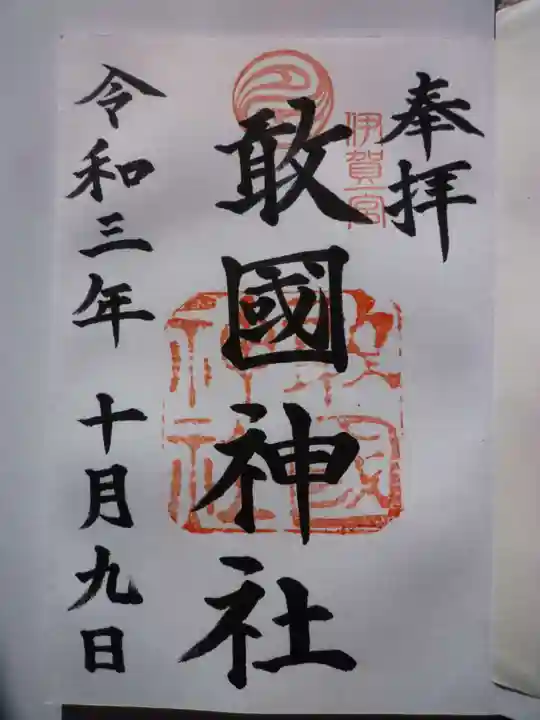 奉拝
伊賀一宮
敢國神社
敢國神社
令和三年 十月九日